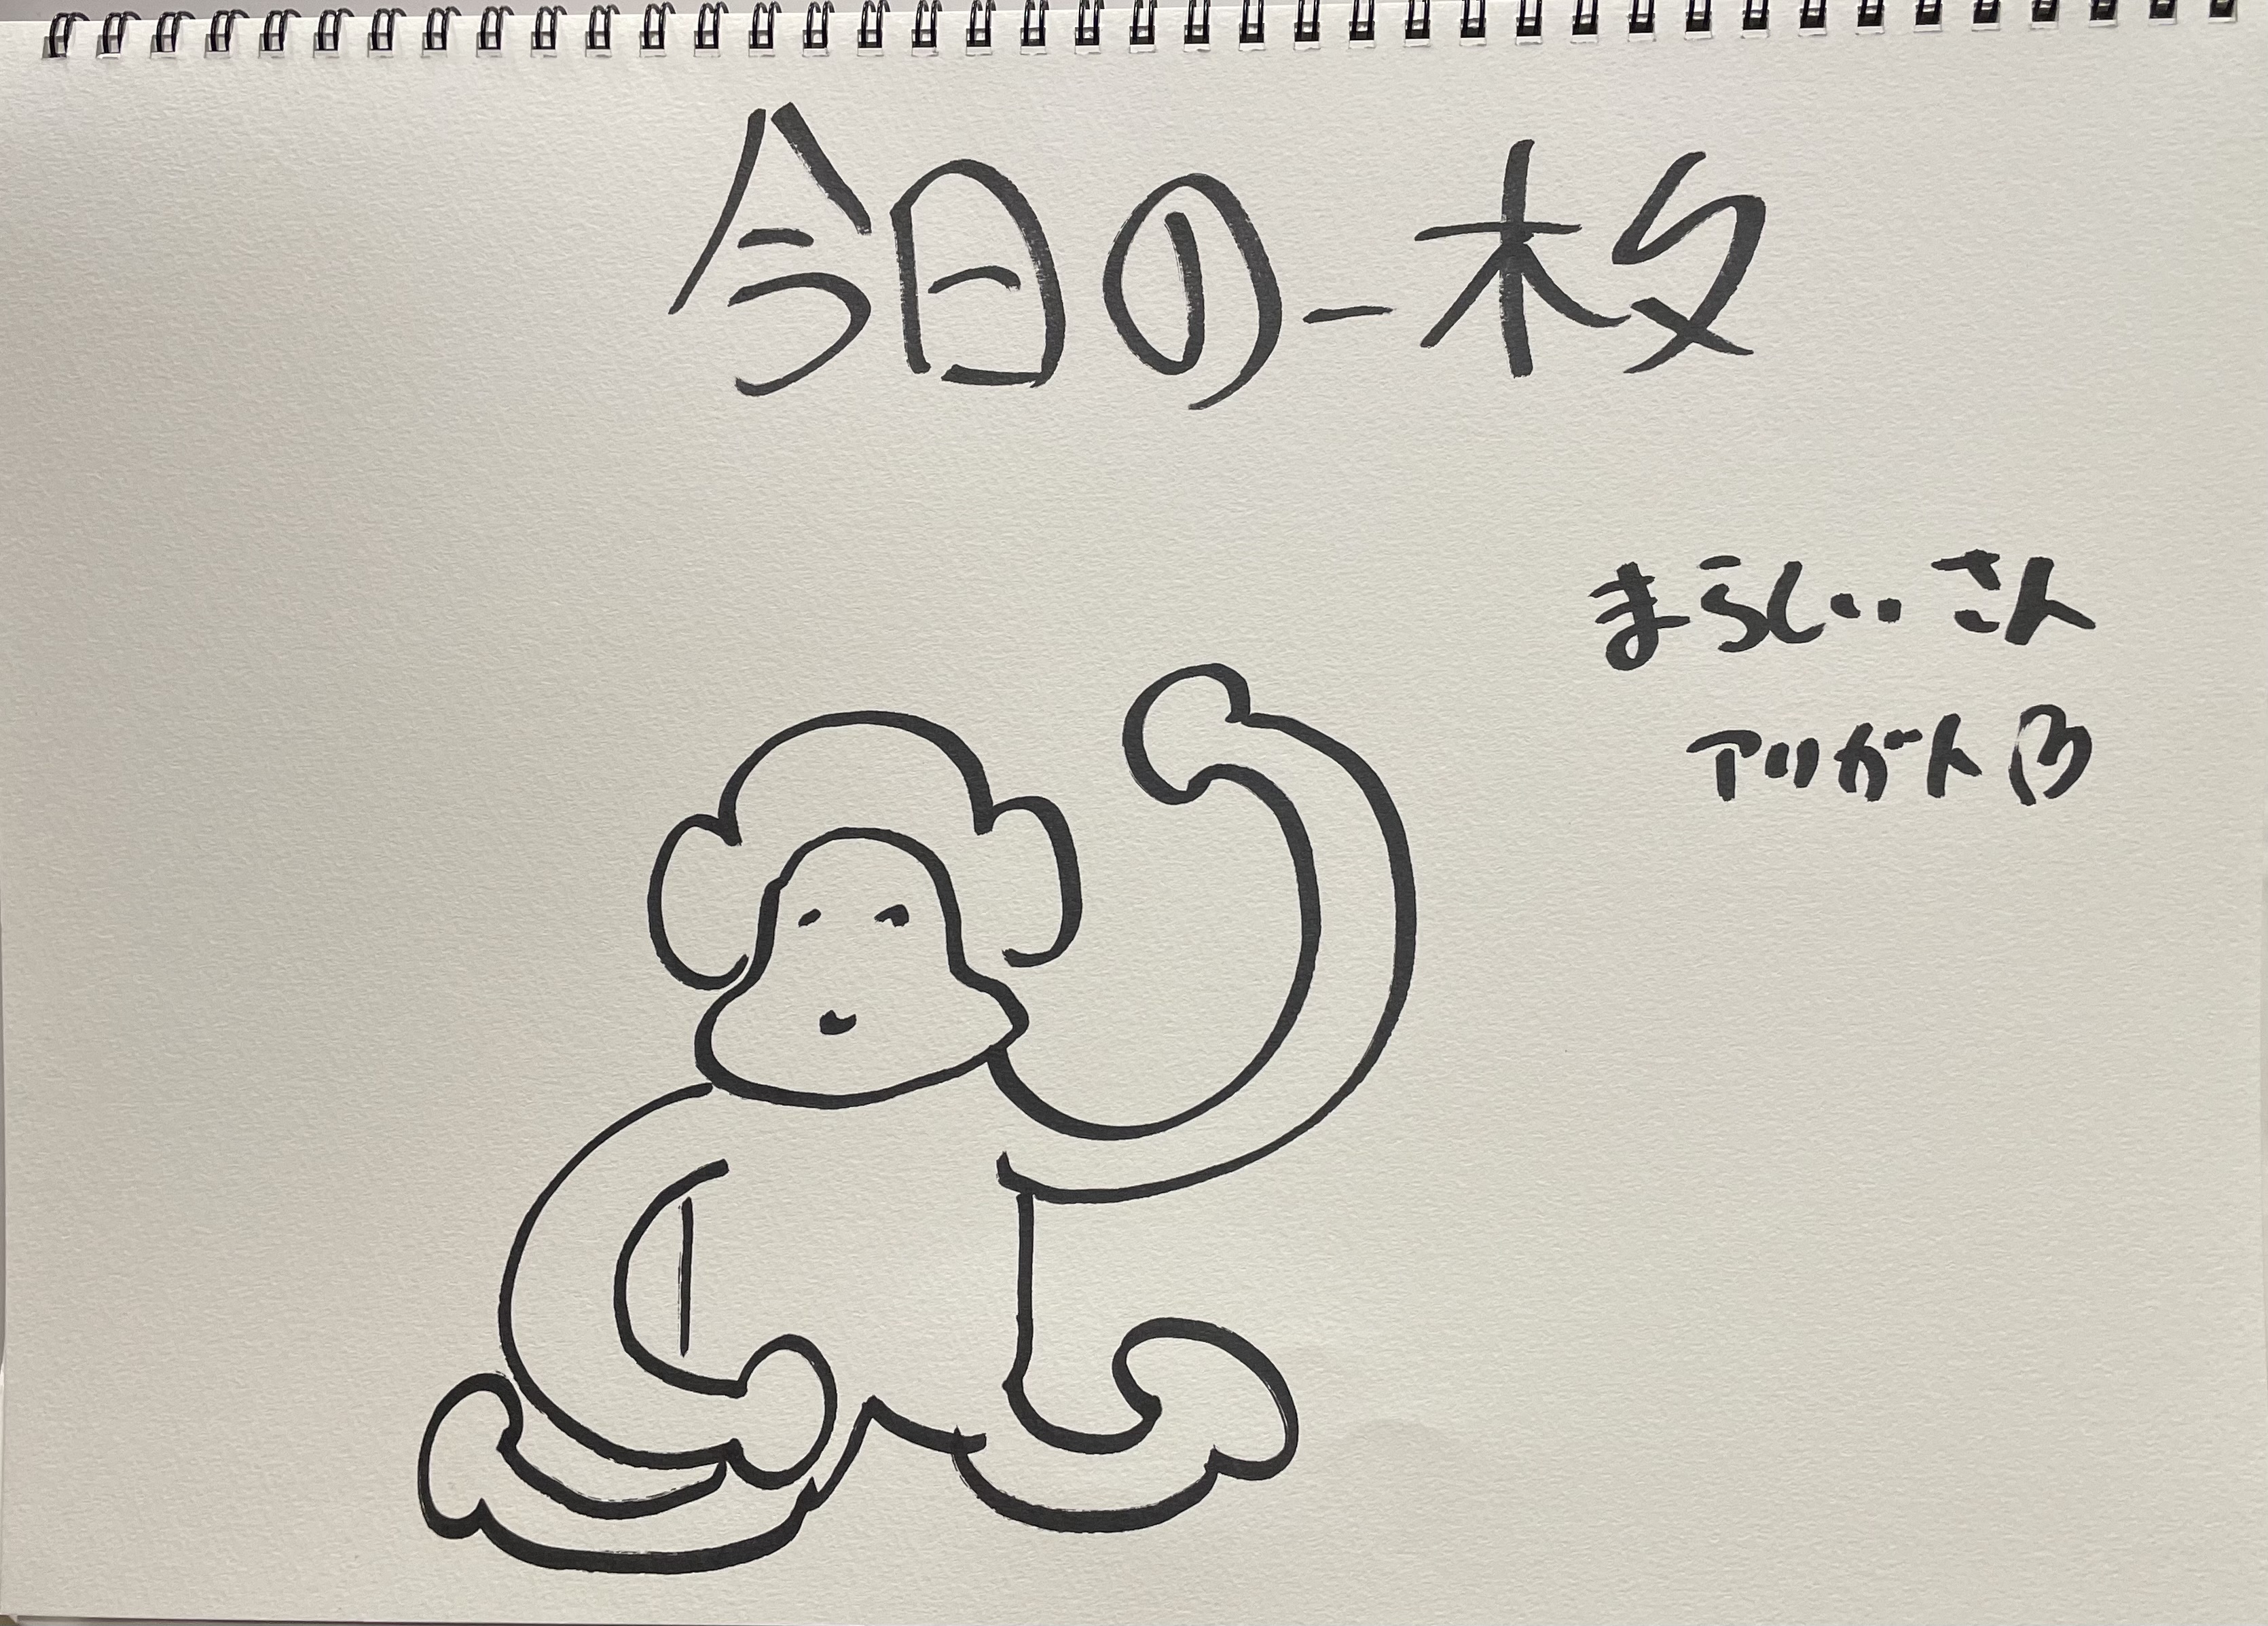 今日の一枚
まらしぃさん
アリガトの